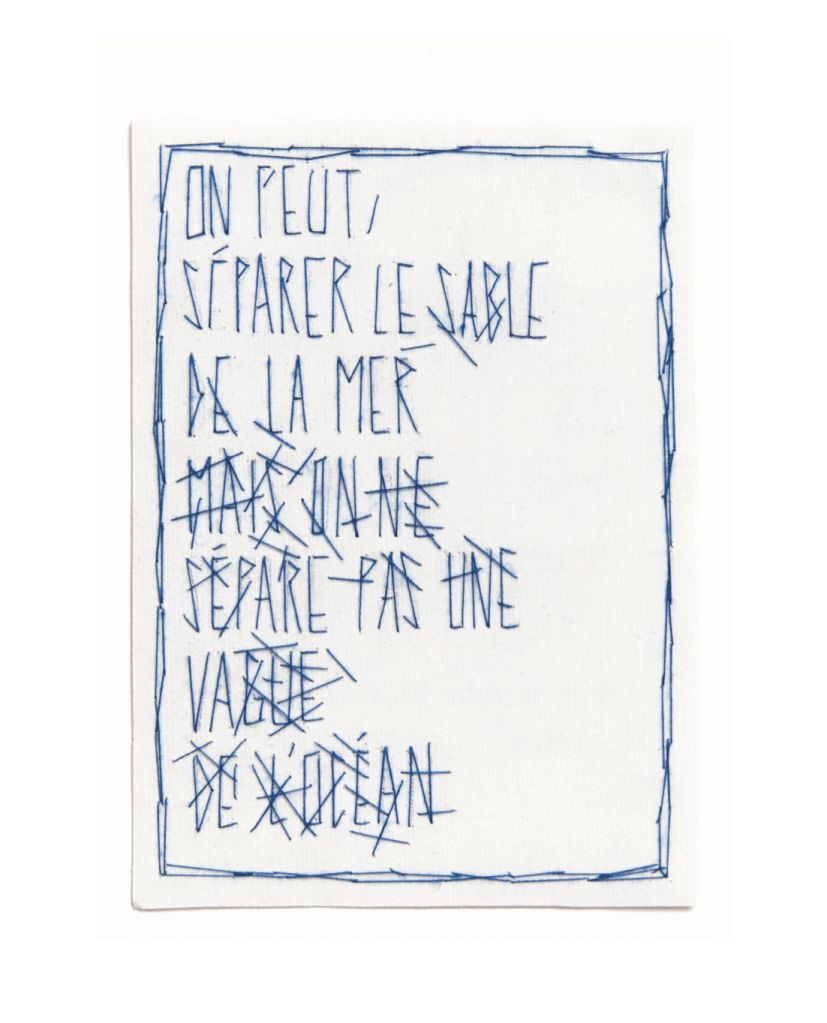 ON PEUT,
SÉPARER LE SABLE
DE LA MER
MAIS ON NE
SÉPARE PAS UNE
VAGUE
DE L'OCÉAN